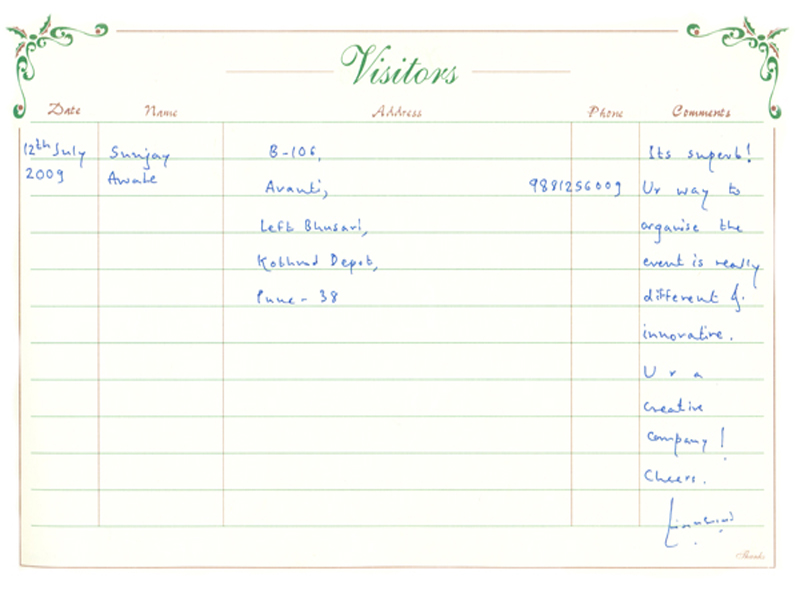 Visitors
Date Name Address Phone Comments
12th July Sunjay B-106, Its superb!
2009 Awate Avanti, 9881256009 Ur way to
Left Bhusari, organise the
Kothrud Depot, event is really
Pune - 38 different &
innovative.
U r a
creative
company!
Cheers.
Thanks